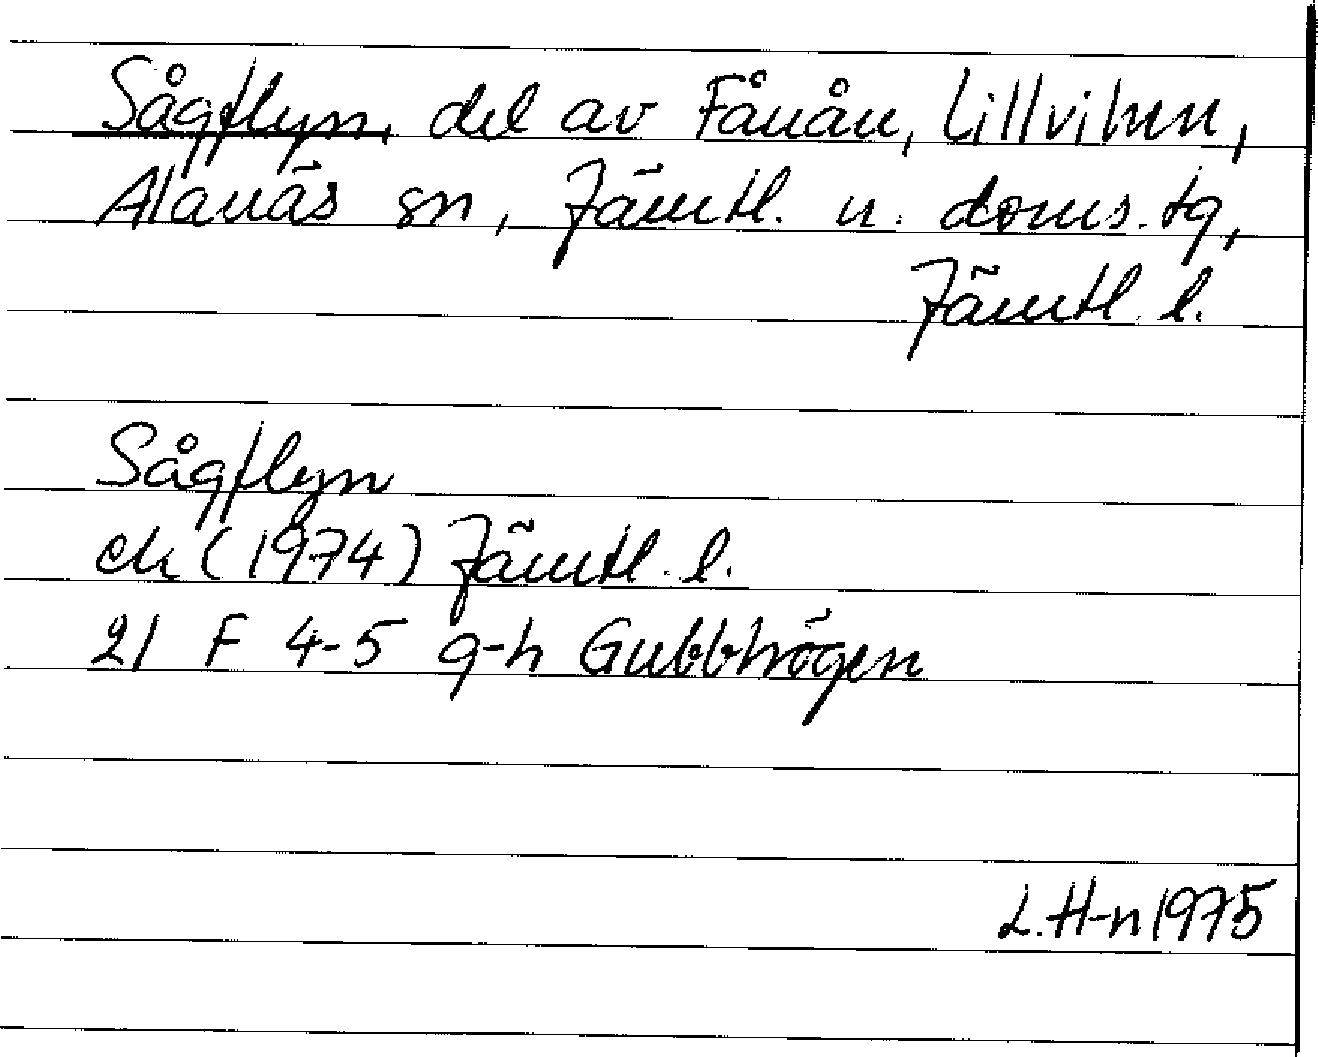 Sågflyn, del av Fånån, Lillviken,
Alanäs sn, Jämtl. n. doms. tg,
Jämtl. l.
Sågflyn
ek (1974) Jämtl. l.
21 F 4-5 g-h Gubbhögen
L.H-n 1975